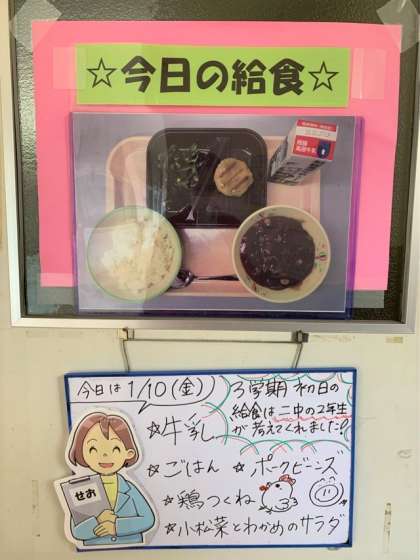 ☆今日の給食☆
今日は1/10(金)
3学期 初日の
給食は二中の2年生
が考えてくれました!
☆牛乳
☆ごはん ☆ポークビーンズ
☆鶏つくね
☆小松菜とわかめのサラダ
せお